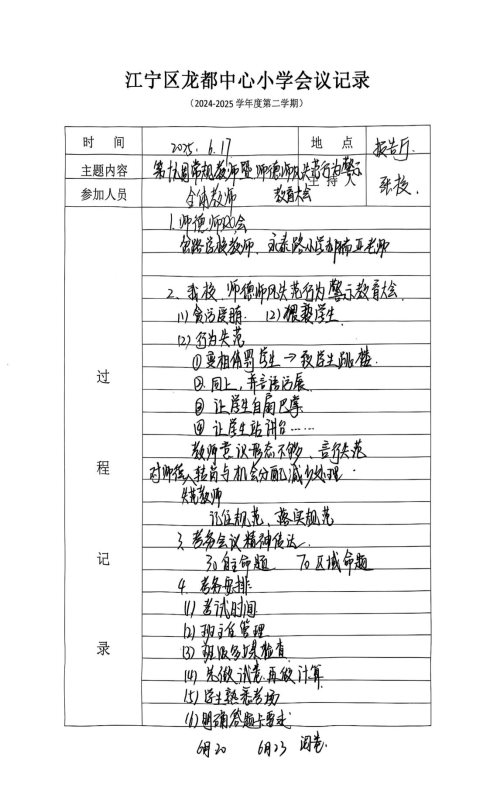 江宁区龙都中心小学会议记录
（2024-2025学年度第二学期）
时 间 2025. 6.17 地 点 报告厅
主题内容 第十八周常规教师暨师德师风失范行为警示教育大会 主 持 人 张校.
参加人员 全体教师
过程记录
1.师德师风会
学校教师、
2、我校、师德师风失范行为警示教育大会.
(1) 贪污受贿. (2) 猥亵学生.
(2) 行为失范
① 变相体罚学生→致学生跳楼.
② 同上，并言语污辱.
③ 让学生自扇巴掌
④ 让学生站讲台……
教师意识形态不够、言行失范
对师德失范教师 转岗与机会分配减少处理.
记住规范、落实规范
3. 考务会议精神传达.
30自主命题 70区域命题
4. 考务安排:
(1) 考试时间
(2) 班主任管理
(3) 班级多媒检查
(4) 先做试卷再做计算
(5) 学生熟悉考场
(6) 明确答题卡要求
6月20 6月23 阅卷.